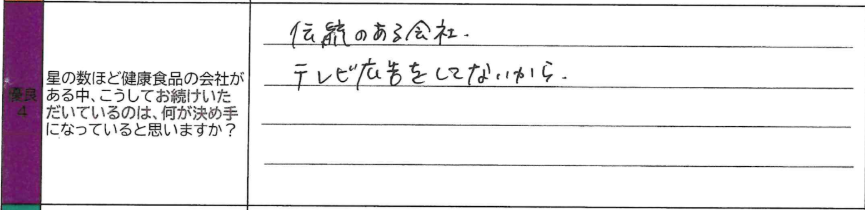 優良
4
星の数ほど健康食品の会社が
ある中、こうしてお続けいた
だいているのは、何が決め手
になっていると思いますか？
伝統のある会社.
テレビ広告をしてないから.